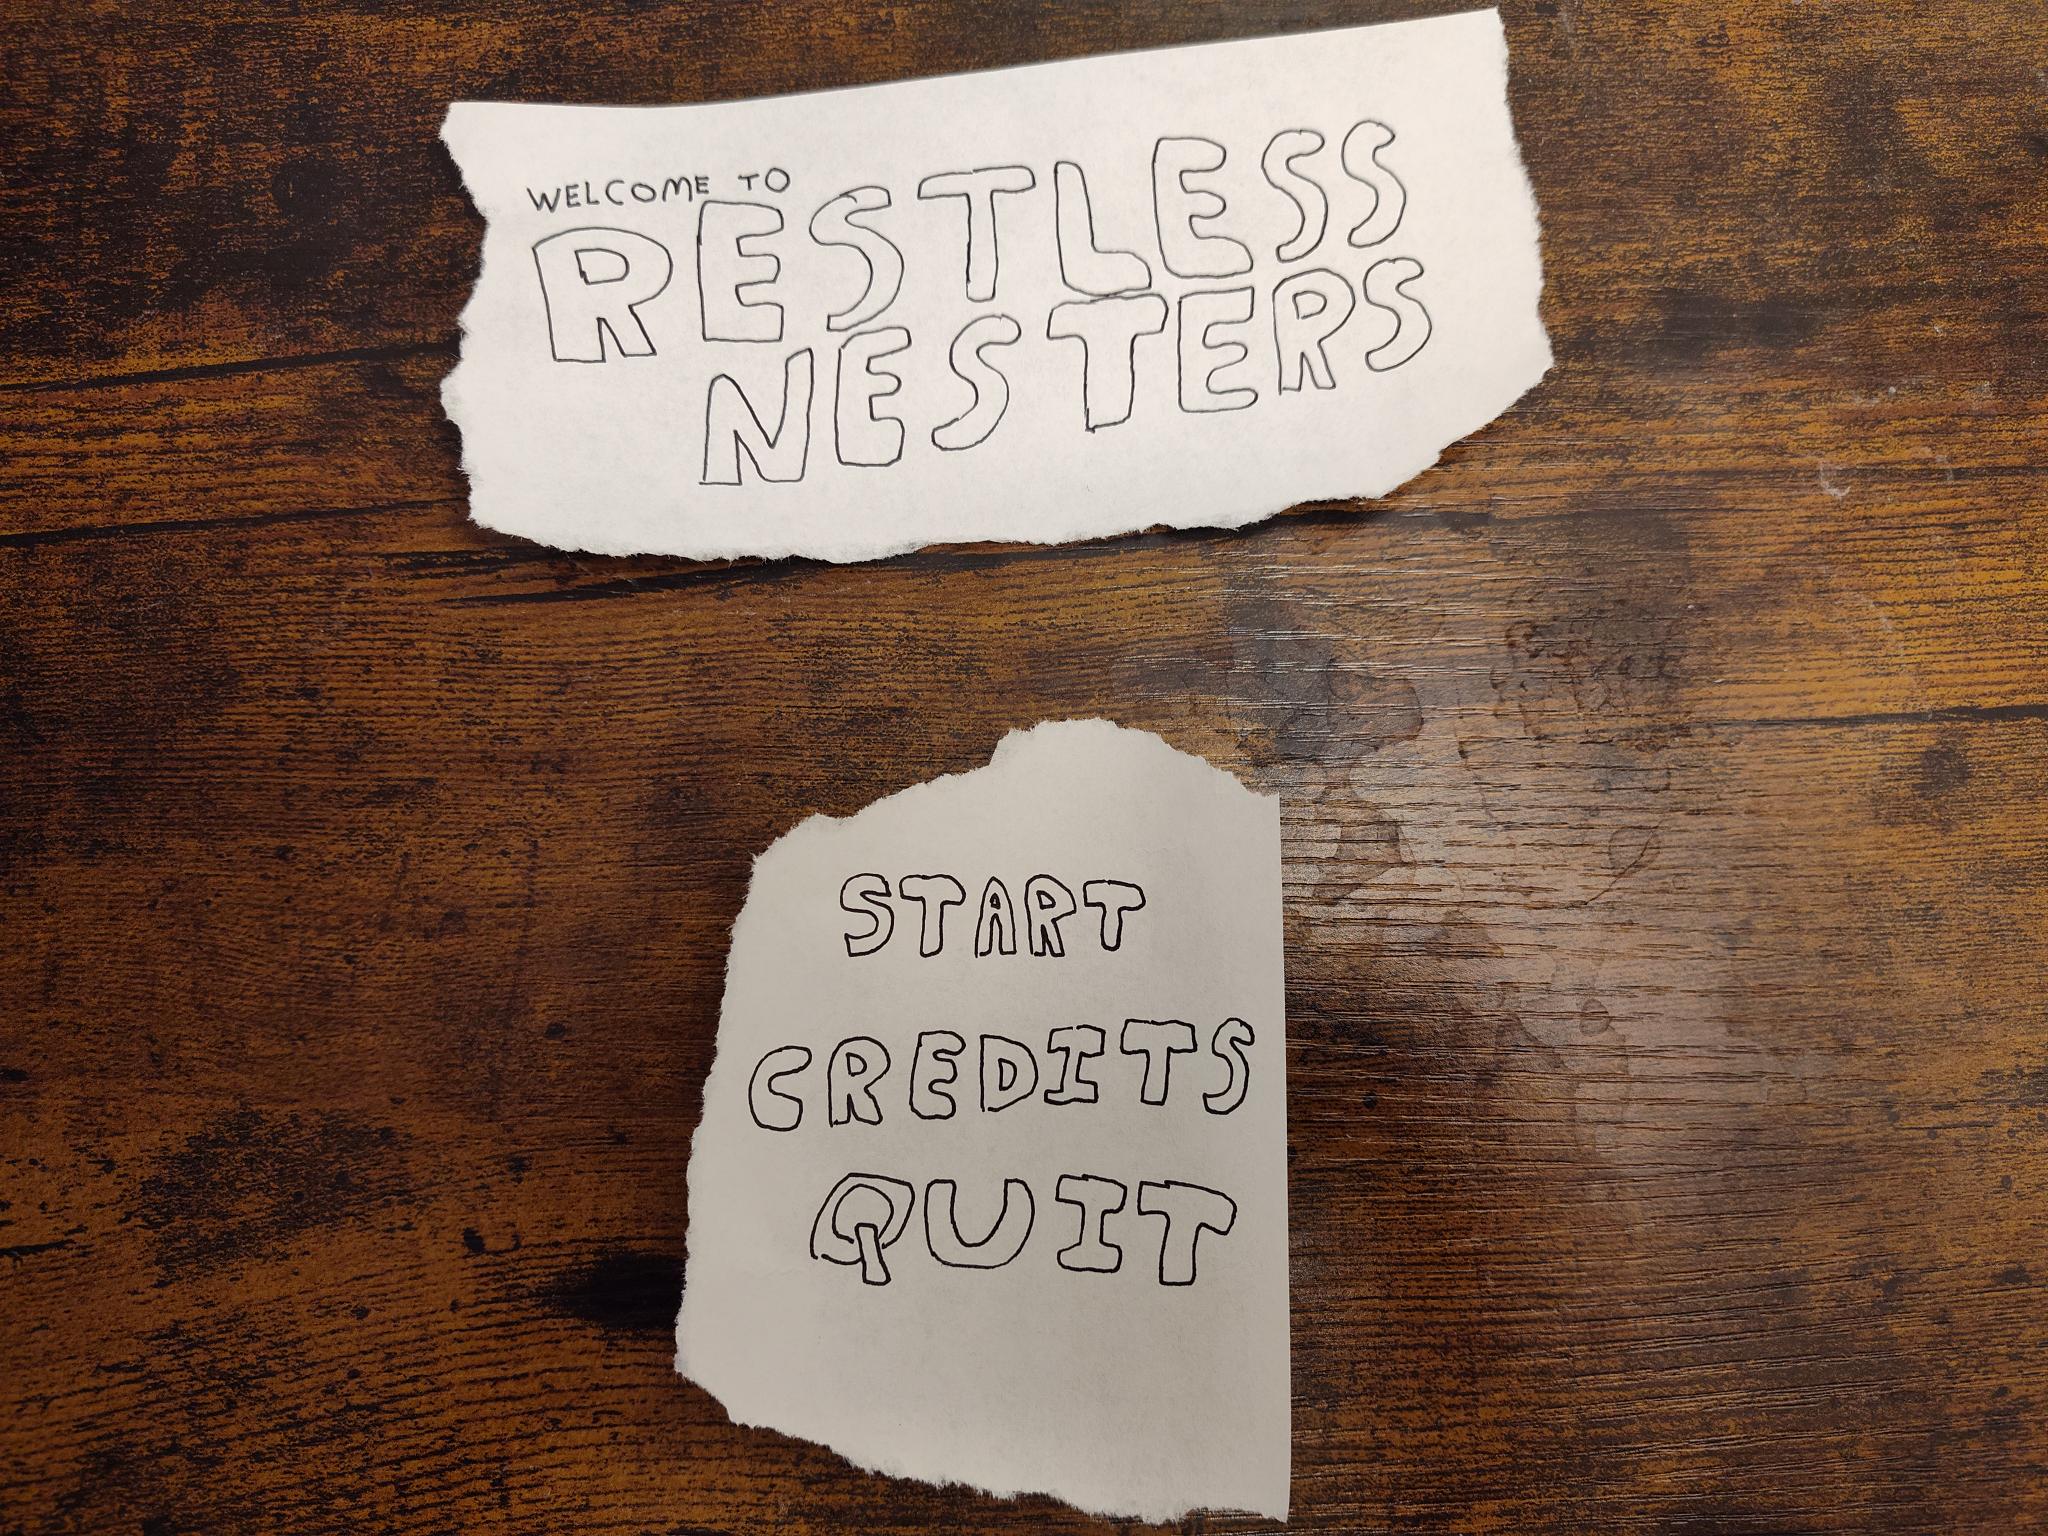 WELCOME TO
RESTLESS
NESTERS
START
CREDITS
QUIT